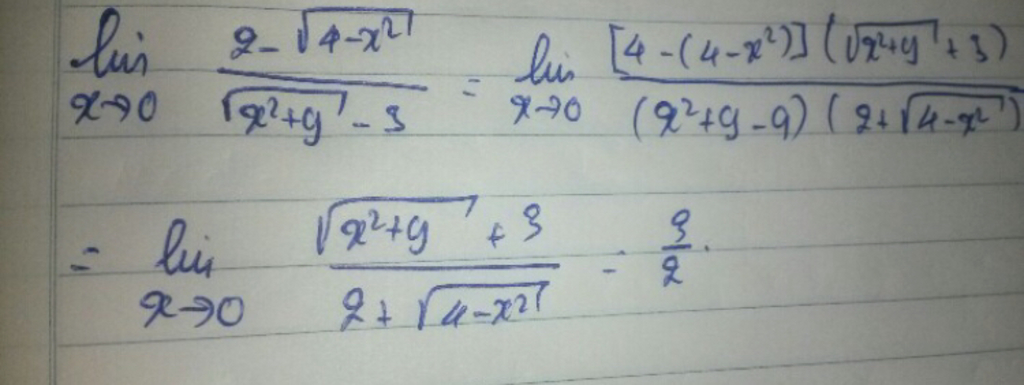 lim x→0 (2 - √(4-x²)) / (√(x²+9) - 3) = lim x→0 ([4-(4-x²)] (√(x²+9) + 3)) / ((x²+9-9) (2+√(4-x²)))
= lim x→0 (√(x²+9) + 3) / (2 + √(4-x²)) = 3/2.